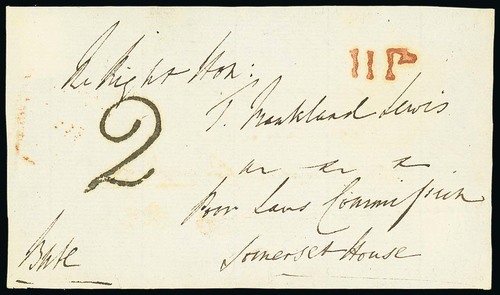 The Right Hon:
11P
T. Frankland Lewis
2
&c &c &c
Poor Laws Commission
Somerset House